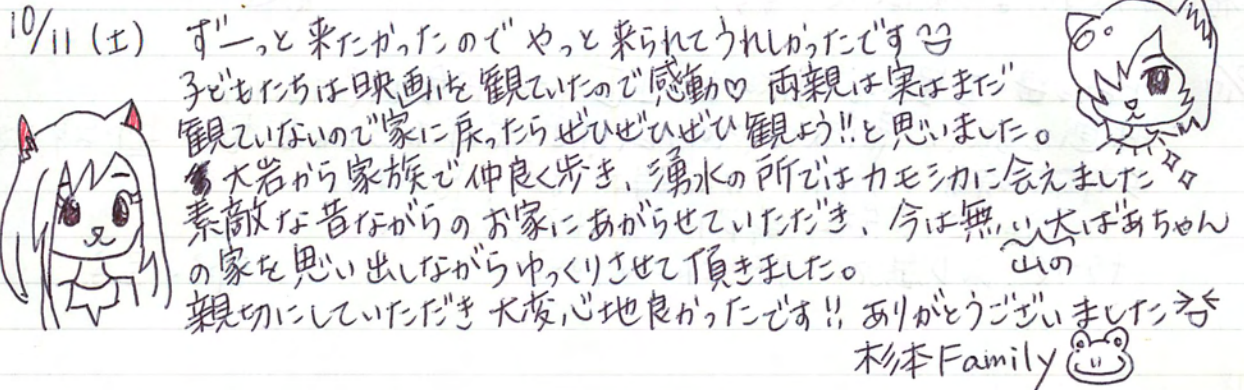 10/11 (土) ずーっと来たかったのでやっと来られてうれしかったです
子どもたちは映画を観ていたので感動♡ 両親は実はまだ
観ていないので家に戻ったらぜひぜひぜひ観よう!!と思いました。
大岩から家族で仲良く歩き、湧水の所ではカモシカに会えました
素敵な昔ながらのお家にあがらせていただき、今は無い大ばあちゃん
山の
の家を思い出しながらゆっくりさせて頂きました。
親切にしていただき大変心地良かったです!! ありがとうございました
杉本Family